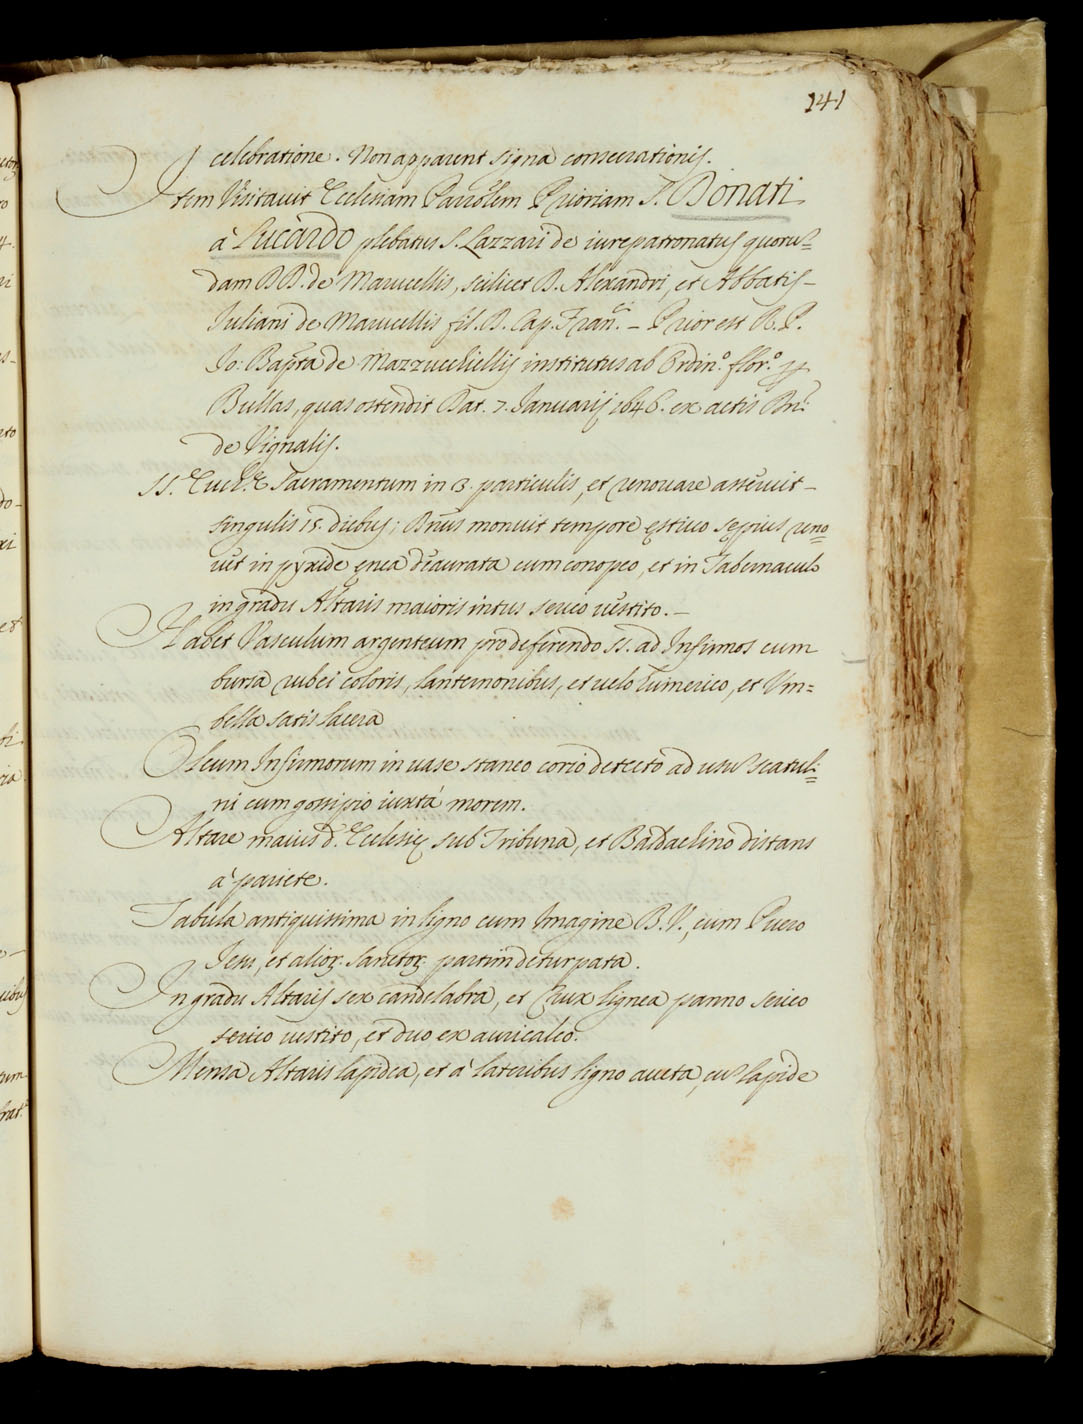 141
celebratione. Non apparent signa consecrationis.
Item Visitavit Ecclesiam Parrõlem Prioriam S. Donati
à Lucardo plebatus S. Lazzari de iurepatronatus quorũ=
dam DD. de Marucellis, scilicet D. Alexandri, et Abbatis –
Iuliani de Marucellis fil. D. Cap. Franci. – Prior est R. P.
Io: Bapta de Mazzucchiellis institutus ab Ordin.º flor.º p
Bullas, quas ostendit Dat. 7. Ianuarij 1646. ex actis Dni:
de Vignalis.
SS. Euch.æ Sacramentum in 13. particulis, et renovare asseruit –
singulis 15. diebus; Dnũs monuit tempore ęstivo sępius reno=
vet in pyxide ęnea deaurata cum conopeo, et in Tabernaculo
in gradu Altaris maioris intus serico vestito. –
Habet Vasculum argenteum pro deferendo SS. ad Infirmos cum
bursa rubei coloris, lanternonibus, et velo humerico, et Vm=
bella satis lacera
Oleum Infirmorum in vase staneo corio detecto ad usũ scatuli=
ni cum gossipio iuxtà morem.
Altare maius d. Ecclesię sub Tribuna, et Baldachino distans
à pariete.
Tabula antiquissima in ligno cum Imagine B. V., cum Puero
Iesu, et alior. Sanctor. partim deturpata.
In gradu Altaris sex candelabra, et Crux lignea panno serico
serico vestito, et duo ex auricalco.
Mensa Altaris lapidea, et à lateribus ligno aucta, cũ lapide